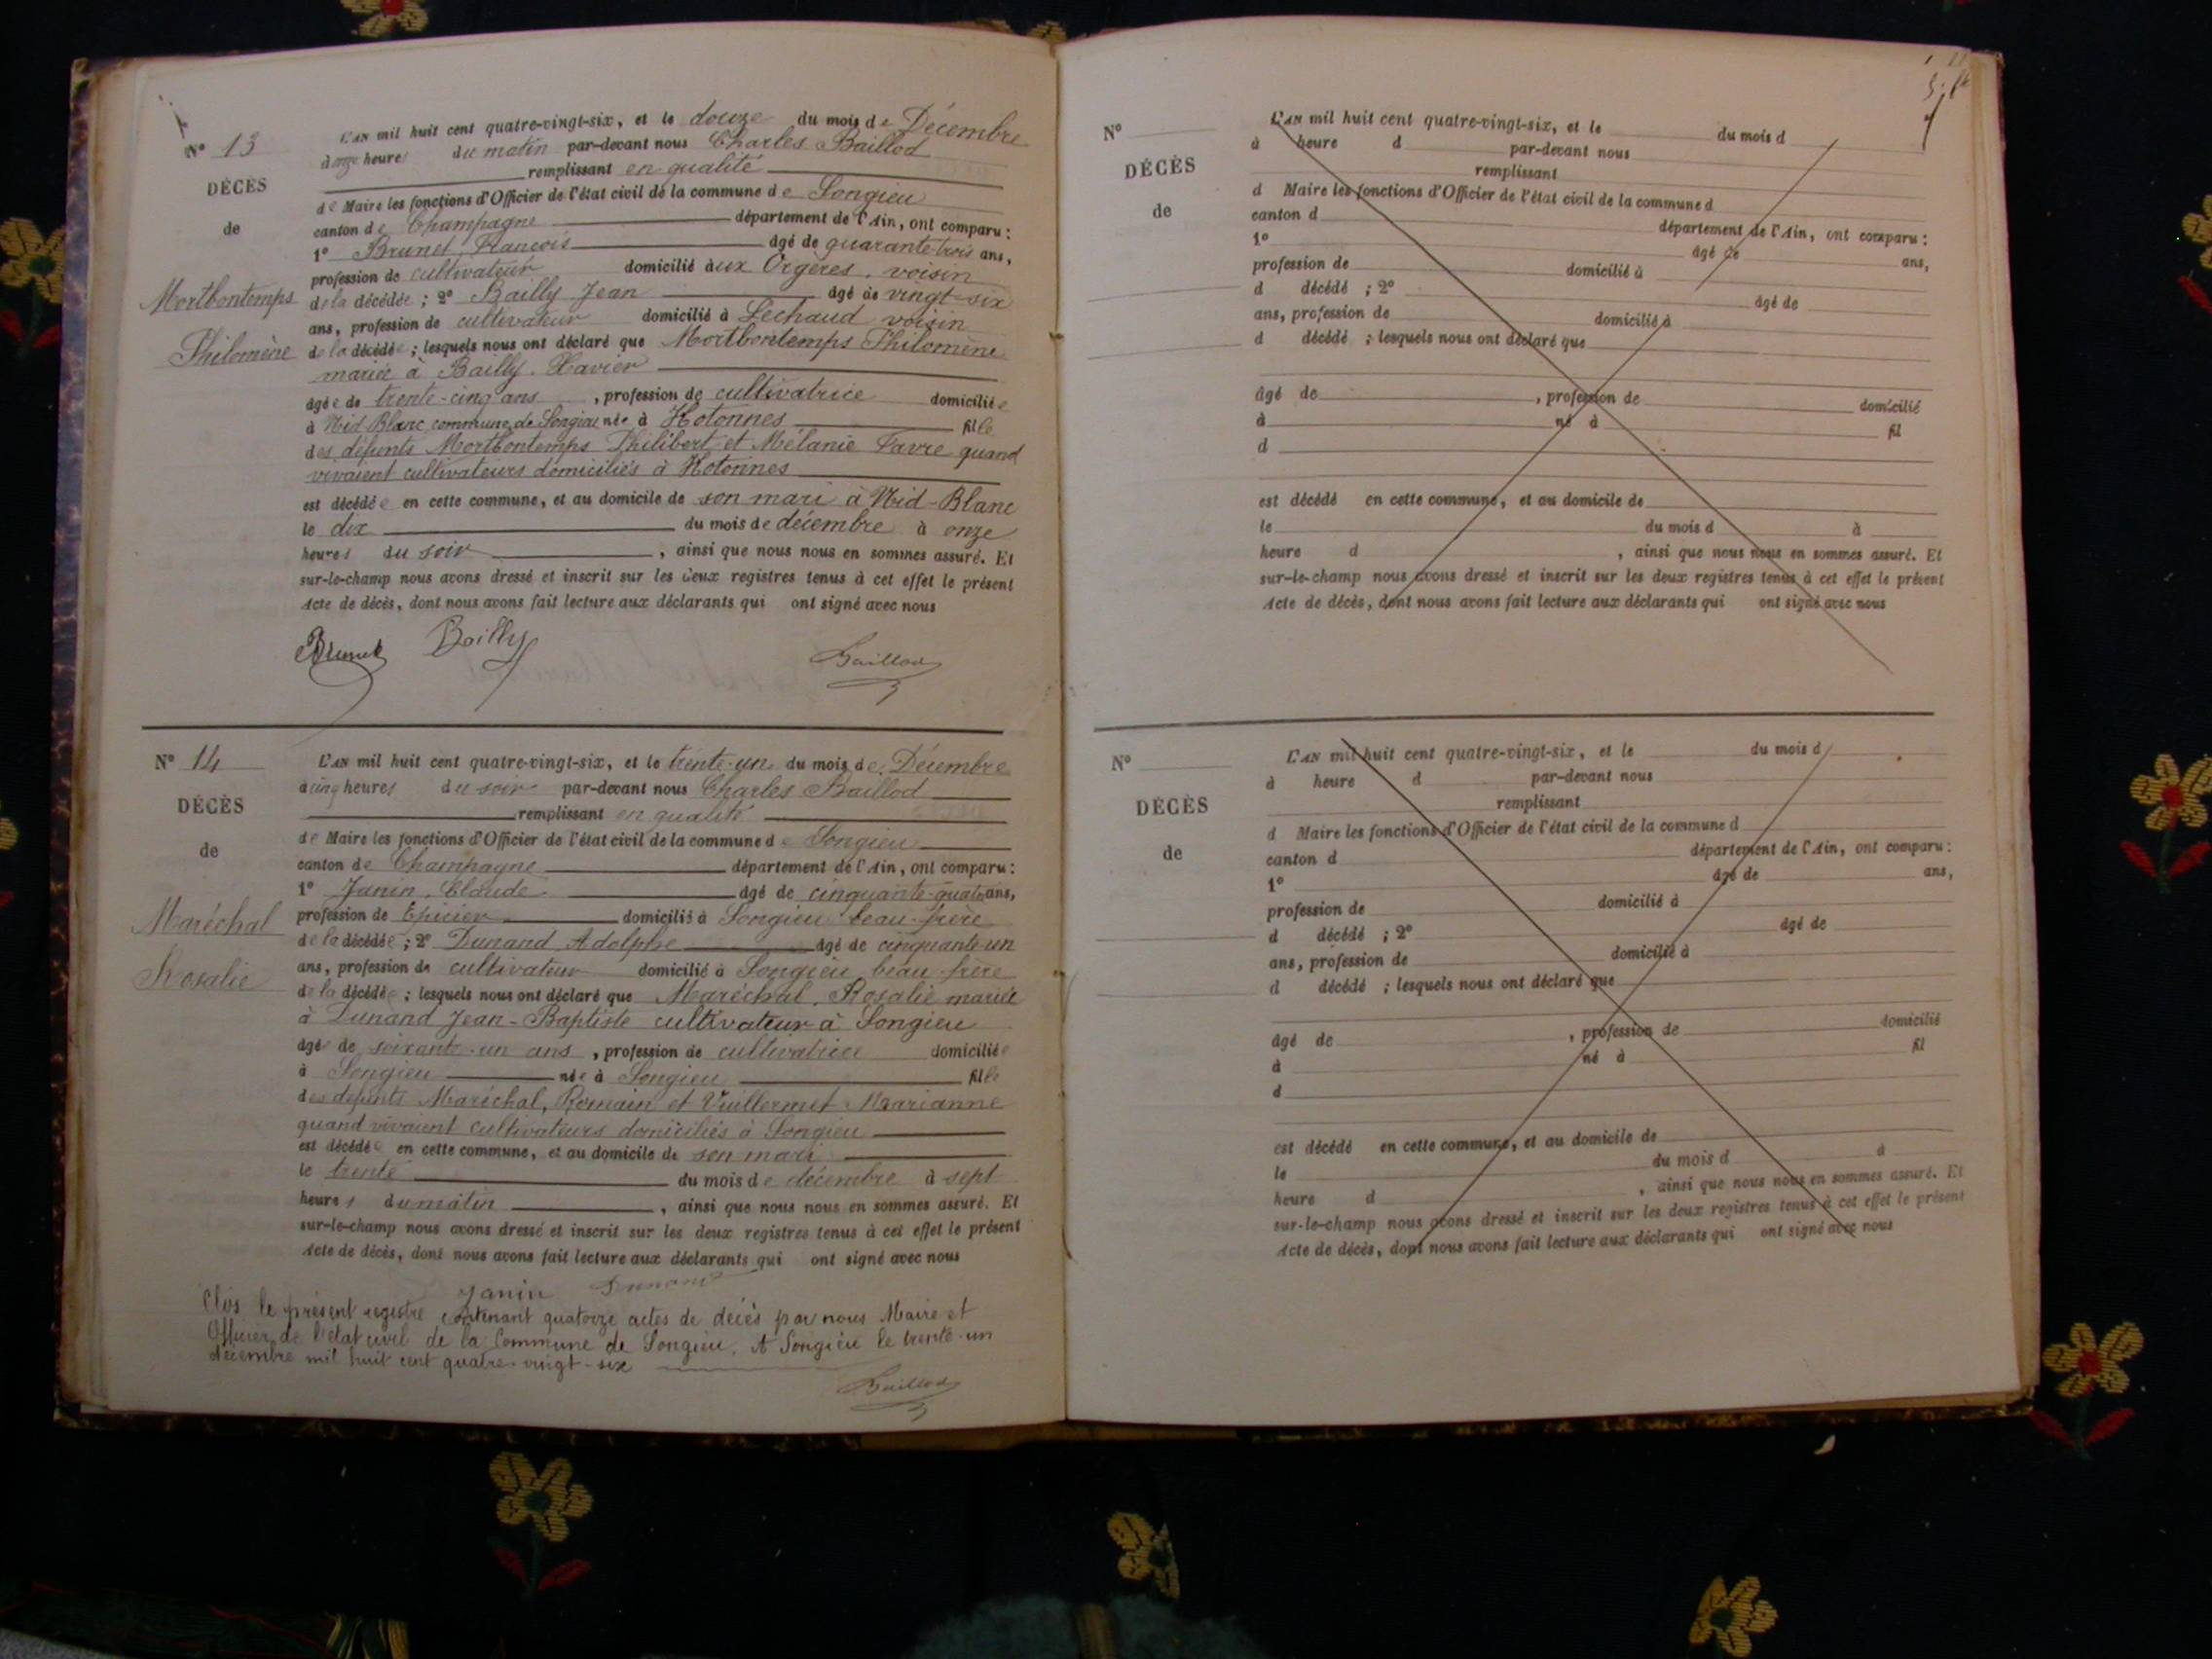 N° 13
DÉCÈS
de
Mortbontemps
Philomène
L'AN mil huit cent quatre-vingt-six, et le douze du mois de Décembre
à onze heures du matin par-devant nous Charles Baillod
remplissant en qualité
de Maire les fonctions d'Officier de l'état civil de la commune de Songieu
canton de Champagne département de l'Ain, ont comparu :
1° Brunet, François âgé de quarante-trois ans,
profession de cultivateur domicilié aux Orgères, voisin
de la décédée ; 2° Bailly Jean âgé de vingt-six
ans, profession de cultivateur domicilié à Lechaud voisin
de la décédée ; lesquels nous ont déclaré que Mortbontemps Philomène
mariée à Bailly Xavier
âgée de trente-cinq ans, profession de cultivatrice domiciliée
à Nid-Blanc commune de Songieu née à Hotonnes fille
des défunts Mortbontemps Philibert et Mélanie Favre quand
vivaient cultivateurs domiciliés à Hotonnes
est décédée en cette commune, et au domicile de son mari à Nid-Blanc
le dix du mois de décembre à onze
heures du soir, ainsi que nous nous en sommes assuré. Et
sur-le-champ nous avons dressé et inscrit sur les deux registres tenus à cet effet le présent
Acte de décès, dont nous avons fait lecture aux déclarants qui ont signé avec nous
Brunet Bailly Baillod
N° 14
DÉCÈS
de
Maréchal
Rosalie
L'AN mil huit cent quatre-vingt-six, et le trente-un du mois de Décembre
à cinq heures du soir par-devant nous Charles Baillod
remplissant en qualité
de Maire les fonctions d'Officier de l'état civil de la commune de Songieu
canton de Champagne département de l'Ain, ont comparu :
1° Janin, Claude âgé de cinquante-quatre ans,
profession de Epicier domicilié à Songieu beau-frère
de la décédée ; 2° Dunand Adolphe âgé de cinquante-un
ans, profession de cultivateur domicilié à Songieu beau-frère
de la décédée ; lesquels nous ont déclaré que Maréchal, Rosalie mariée
à Dunand Jean-Baptiste cultivateur à Songieu
âgée de soixante-un ans, profession de cultivatrice domiciliée
à Songieu née à Songieu fille
des défunts Maréchal, Romain et Vuillermet Marianne
quand vivaient cultivateurs domiciliés à Songieu
est décédée en cette commune, et au domicile de son mari
le trente du mois de décembre à sept
heures du matin, ainsi que nous nous en sommes assuré. Et
sur-le-champ nous avons dressé et inscrit sur les deux registres tenus à cet effet le présent
Acte de décès, dont nous avons fait lecture aux déclarants qui ont signé avec nous
Janin Dunand
Clos le présent registre contenant quatorze actes de décès par nous Maire et
Officier de l'état civil de la Commune de Songieu. A Songieu le trente-un
décembre mil huit cent quatre-vingt-six
Baillod
N°
DÉCÈS
de
L'AN mil huit cent quatre-vingt-six, et le du mois d
à heure d par-devant nous
remplissant
d Maire les fonctions d'Officier de l'état civil de la commune d
canton d département de l'Ain, ont comparu :
1° âgé de ans,
profession de domicilié à
d décédé ; 2° âgé de
ans, profession de domicilié à
d décédé ; lesquels nous ont déclaré que
âgé de , profession de domicilié
à né à fil
d
est décédé en cette commune, et au domicile de
le du mois d à
heure d , ainsi que nous nous en sommes assuré. Et
sur-le-champ nous avons dressé et inscrit sur les deux registres tenus à cet effet le présent
Acte de décès, dont nous avons fait lecture aux déclarants qui ont signé avec nous
N°
DÉCÈS
de
L'AN mil huit cent quatre-vingt-six, et le du mois d
à heure d par-devant nous
remplissant
d Maire les fonctions d'Officier de l'état civil de la commune d
canton d département de l'Ain, ont comparu :
1° âgé de ans,
profession de domicilié à
d décédé ; 2° âgé de
ans, profession de domicilié à
d décédé ; lesquels nous ont déclaré que
âgé de , profession de domicilié
à né à fil
d
est décédé en cette commune, et au domicile de
le du mois d à
heure d , ainsi que nous nous en sommes assuré. Et
sur-le-champ nous avons dressé et inscrit sur les deux registres tenus à cet effet le présent
Acte de décès, dont nous avons fait lecture aux déclarants qui ont signé avec nous